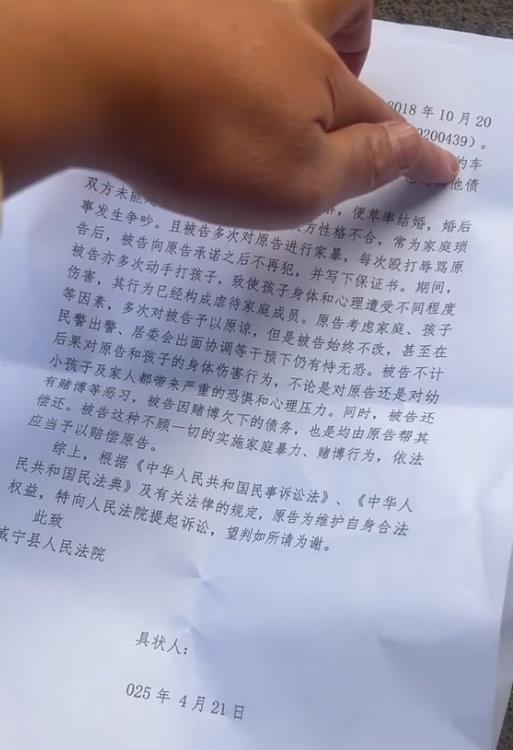 2018年10月20
0200439）。
的车
他债
，便草率结婚，婚后
双方未能 方性格不合，常为家庭琐
事发生争吵。且被告多次对原告进行家暴，每次殴打辱骂原
告后，被告向原告承诺之后不再犯，并写下保证书。期间，
被告亦多次动手打孩子，致使孩子身体和心理遭受不同程度
伤害，其行为已经构成虐待家庭成员。原告考虑家庭、孩子
等因素，多次对被告予以原谅，但是被告始终不改，甚至在
民警出警、居委会出面协调等干预下仍有恃无恐。被告不计
后果对原告和孩子的身体伤害行为，不论是对原告还是对幼
小孩子及家人都带来严重的恐惧和心理压力。同时，被告还
有赌博等恶习，被告因赌博欠下的债务，也是均由原告帮其
偿还。被告这种不顾一切的实施家庭暴力、赌博行为，依法
应当予以赔偿原告。
综上，根据《中华人民共和国民事诉讼法》、《中华人
民共和国民法典》及有关法律的规定，原告为维护自身合法
权益，特向人民法院提起诉讼，望判如所请为谢。
此致
威宁县人民法院
具状人：
025年 4月21日